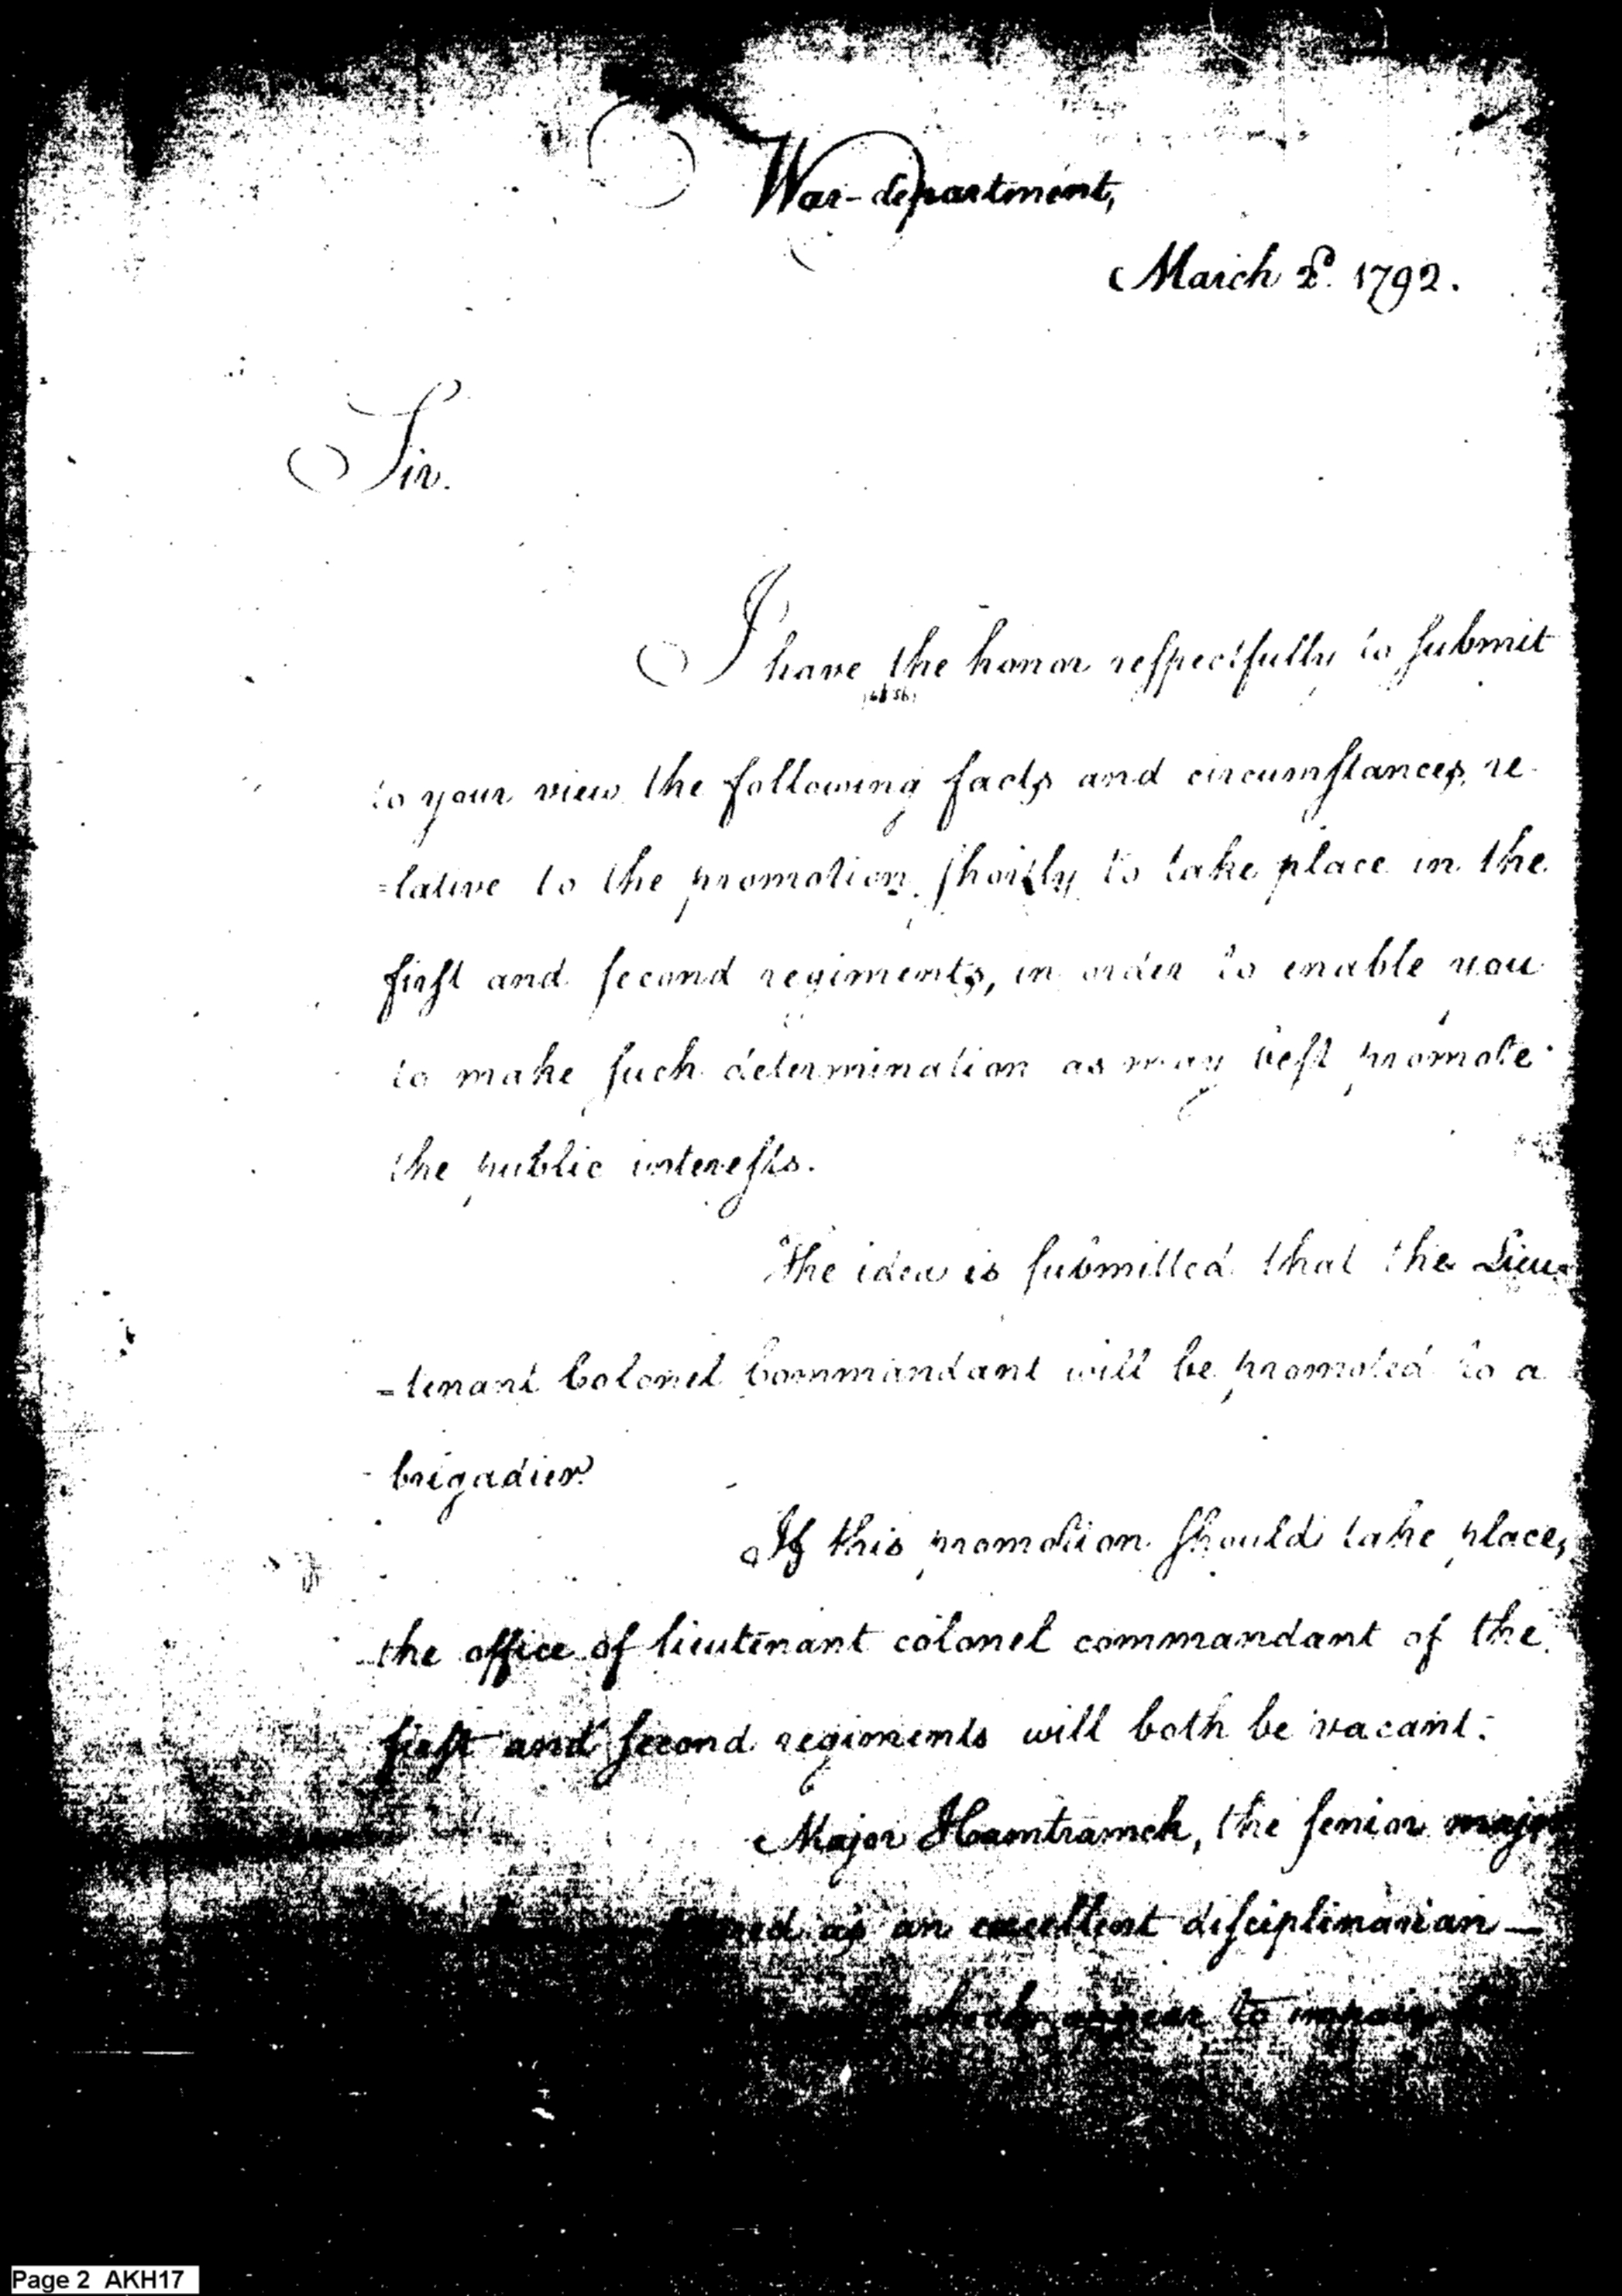 War-department,
March 2d. 1792.
Sir.
I have the honor respectfully to submit
to your view the following facts and circumstances, re-
=lative to the promotion shortly to take place in the
first and second regiments, in order to enable you
to make such determination as may best promote
the public interests.
The idea is submitted that the Lieu=
=tenant Colonel Commandant will be promoted to a
brigadier.
If this promotion should take place,
the office of lieutenant colonel commandant of the
first and second regiments will both be vacant.
Major Hamtramck, the senior major
as an excellent disciplinarian—
appear to
Page 2 AKH17